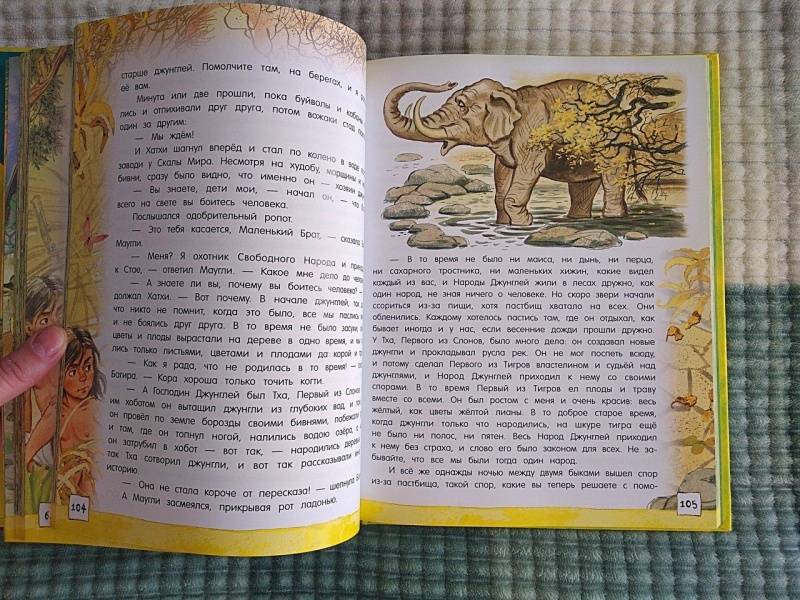 старше джунглей. Помолчите там, на берегах, и я
её вам.
Минута или две прошли, пока буйволы и кабаны
лись и отпихивали друг друга, потом вожаки стад
один за другим:
— Мы ждём!
И Хатхи шагнул вперёд и стал по колено в воде
заводи у Скалы Мира. Несмотря на худобу, морщины и
бивни, сразу было видно, что именно он — хозяин
— Вы знаете, дети мои, — начал он, — что
всего на свете вы боитесь человека.
Послышался одобрительный ропот.
— Это тебя касается, Маленький Брат, — сказала
Маугли.
— Меня? Я охотник Свободного Народа и
к Стае, — ответил Маугли. — Какое мне дело до
— А знаете ли вы, почему вы боитесь человека? —
должал Хатхи. — Вот почему. В начале джунглей, так
что никто не помнит, когда это было, все мы паслись
и не боялись друг друга. В то время не было засухи,
цветы и плоды вырастали на дереве в одно время, и мы
лись только листьями, цветами и плодами да корой и
— Как я рада, что не родилась в то время! —
Багира. — Кора хороша только точить когти.
— А Господин Джунглей был Тха, Первый из Слонов.
им хоботом он вытащил джунгли из глубоких вод, и
он провёл по земле борозды своими бивнями,
и там, где он топнул ногой, налились водою озёра,
он затрубил в хобот — вот так, — народились
так Тха сотворил джунгли, и вот так рассказывали мне
историю.
— Она не стала короче от пересказа! — шепнула
А Маугли засмеялся, прикрывая рот ладонью.
6
104
— В то время не было ни маиса, ни дынь, ни перца,
ни сахарного тростника, ни маленьких хижин, какие видел
каждый из вас, и Народы Джунглей жили в лесах дружно, как
один народ, не зная ничего о человеке. Но скоро звери начали
ссориться из-за пищи, хотя пастбищ хватало на всех. Они
обленились. Каждому хотелось пастись там, где он отдыхал, как
бывает иногда и у нас, если весенние дожди прошли дружно.
У Тха, Первого из Слонов, было много дела: он создавал новые
джунгли и прокладывал русла рек. Он не мог поспеть всюду,
и потому сделал Первого из Тигров властелином и судьёй над
джунглями, и Народ Джунглей приходил к нему со своими
спорами. В то время Первый из Тигров ел плоды и траву
вместе со всеми. Он был ростом с меня и очень красив: весь
жёлтый, как цветы жёлтой лианы. В то доброе старое время,
когда джунгли только что народились, на шкуре тигра ещё
не было ни полос, ни пятен. Весь Народ Джунглей приходил
к нему без страха, и слово его было законом для всех. Не за-
бывайте, что все мы были тогда один народ.
И всё же однажды ночью между двумя быками вышел спор
из-за пастбища, такой спор, какие вы теперь решаете с помо-
105